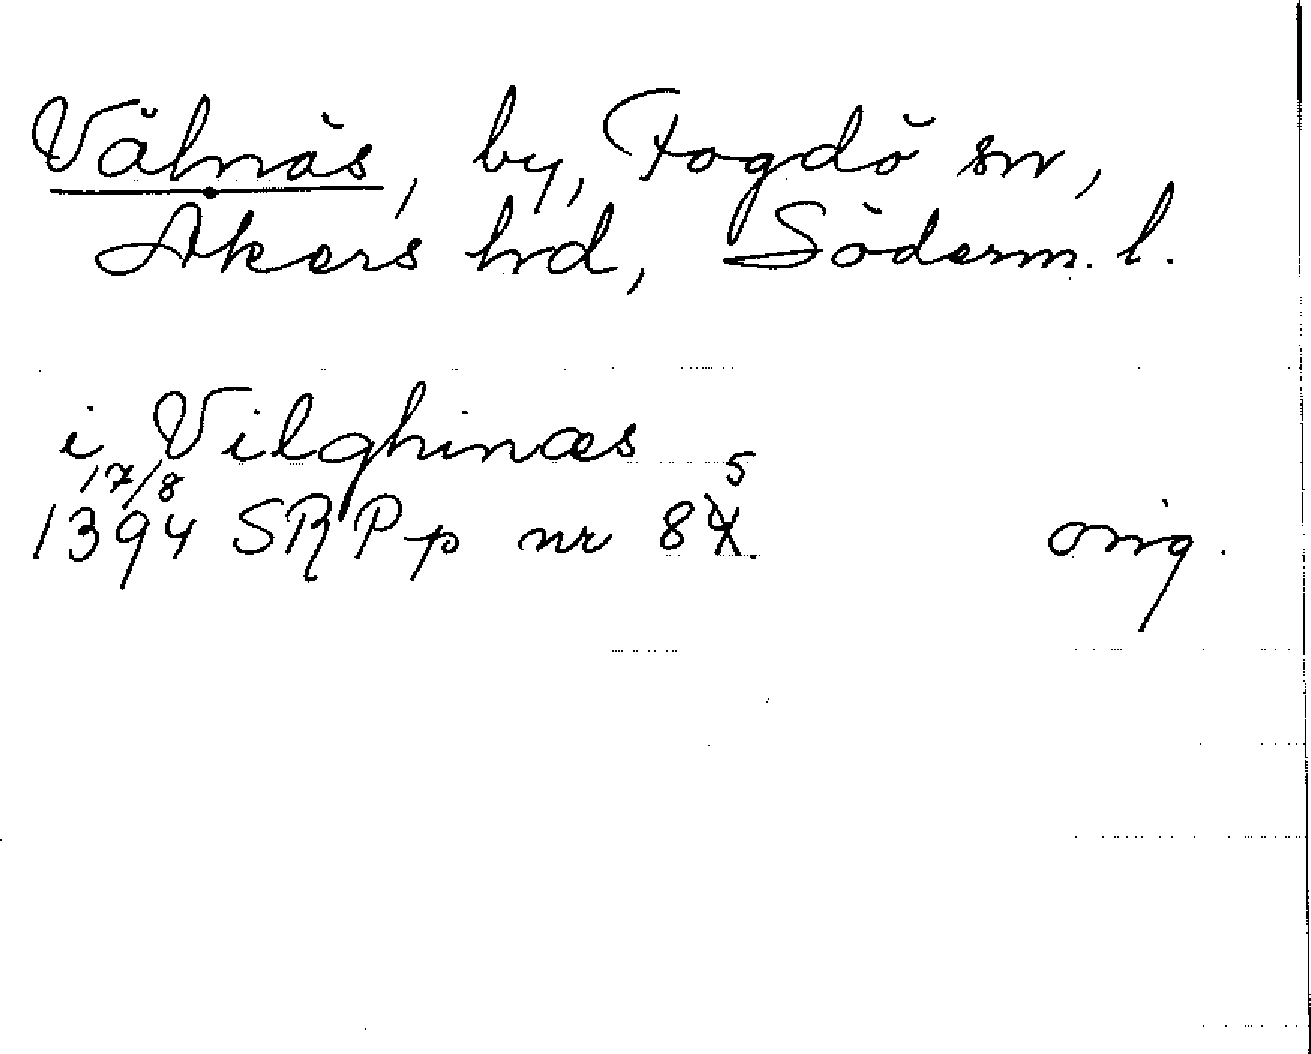 Välnäs, by, Fogdö sn,
Åkers hd, Söderm. l.
i Vilghinæs
17/8 5
1394 SRPp nr 84. orig.